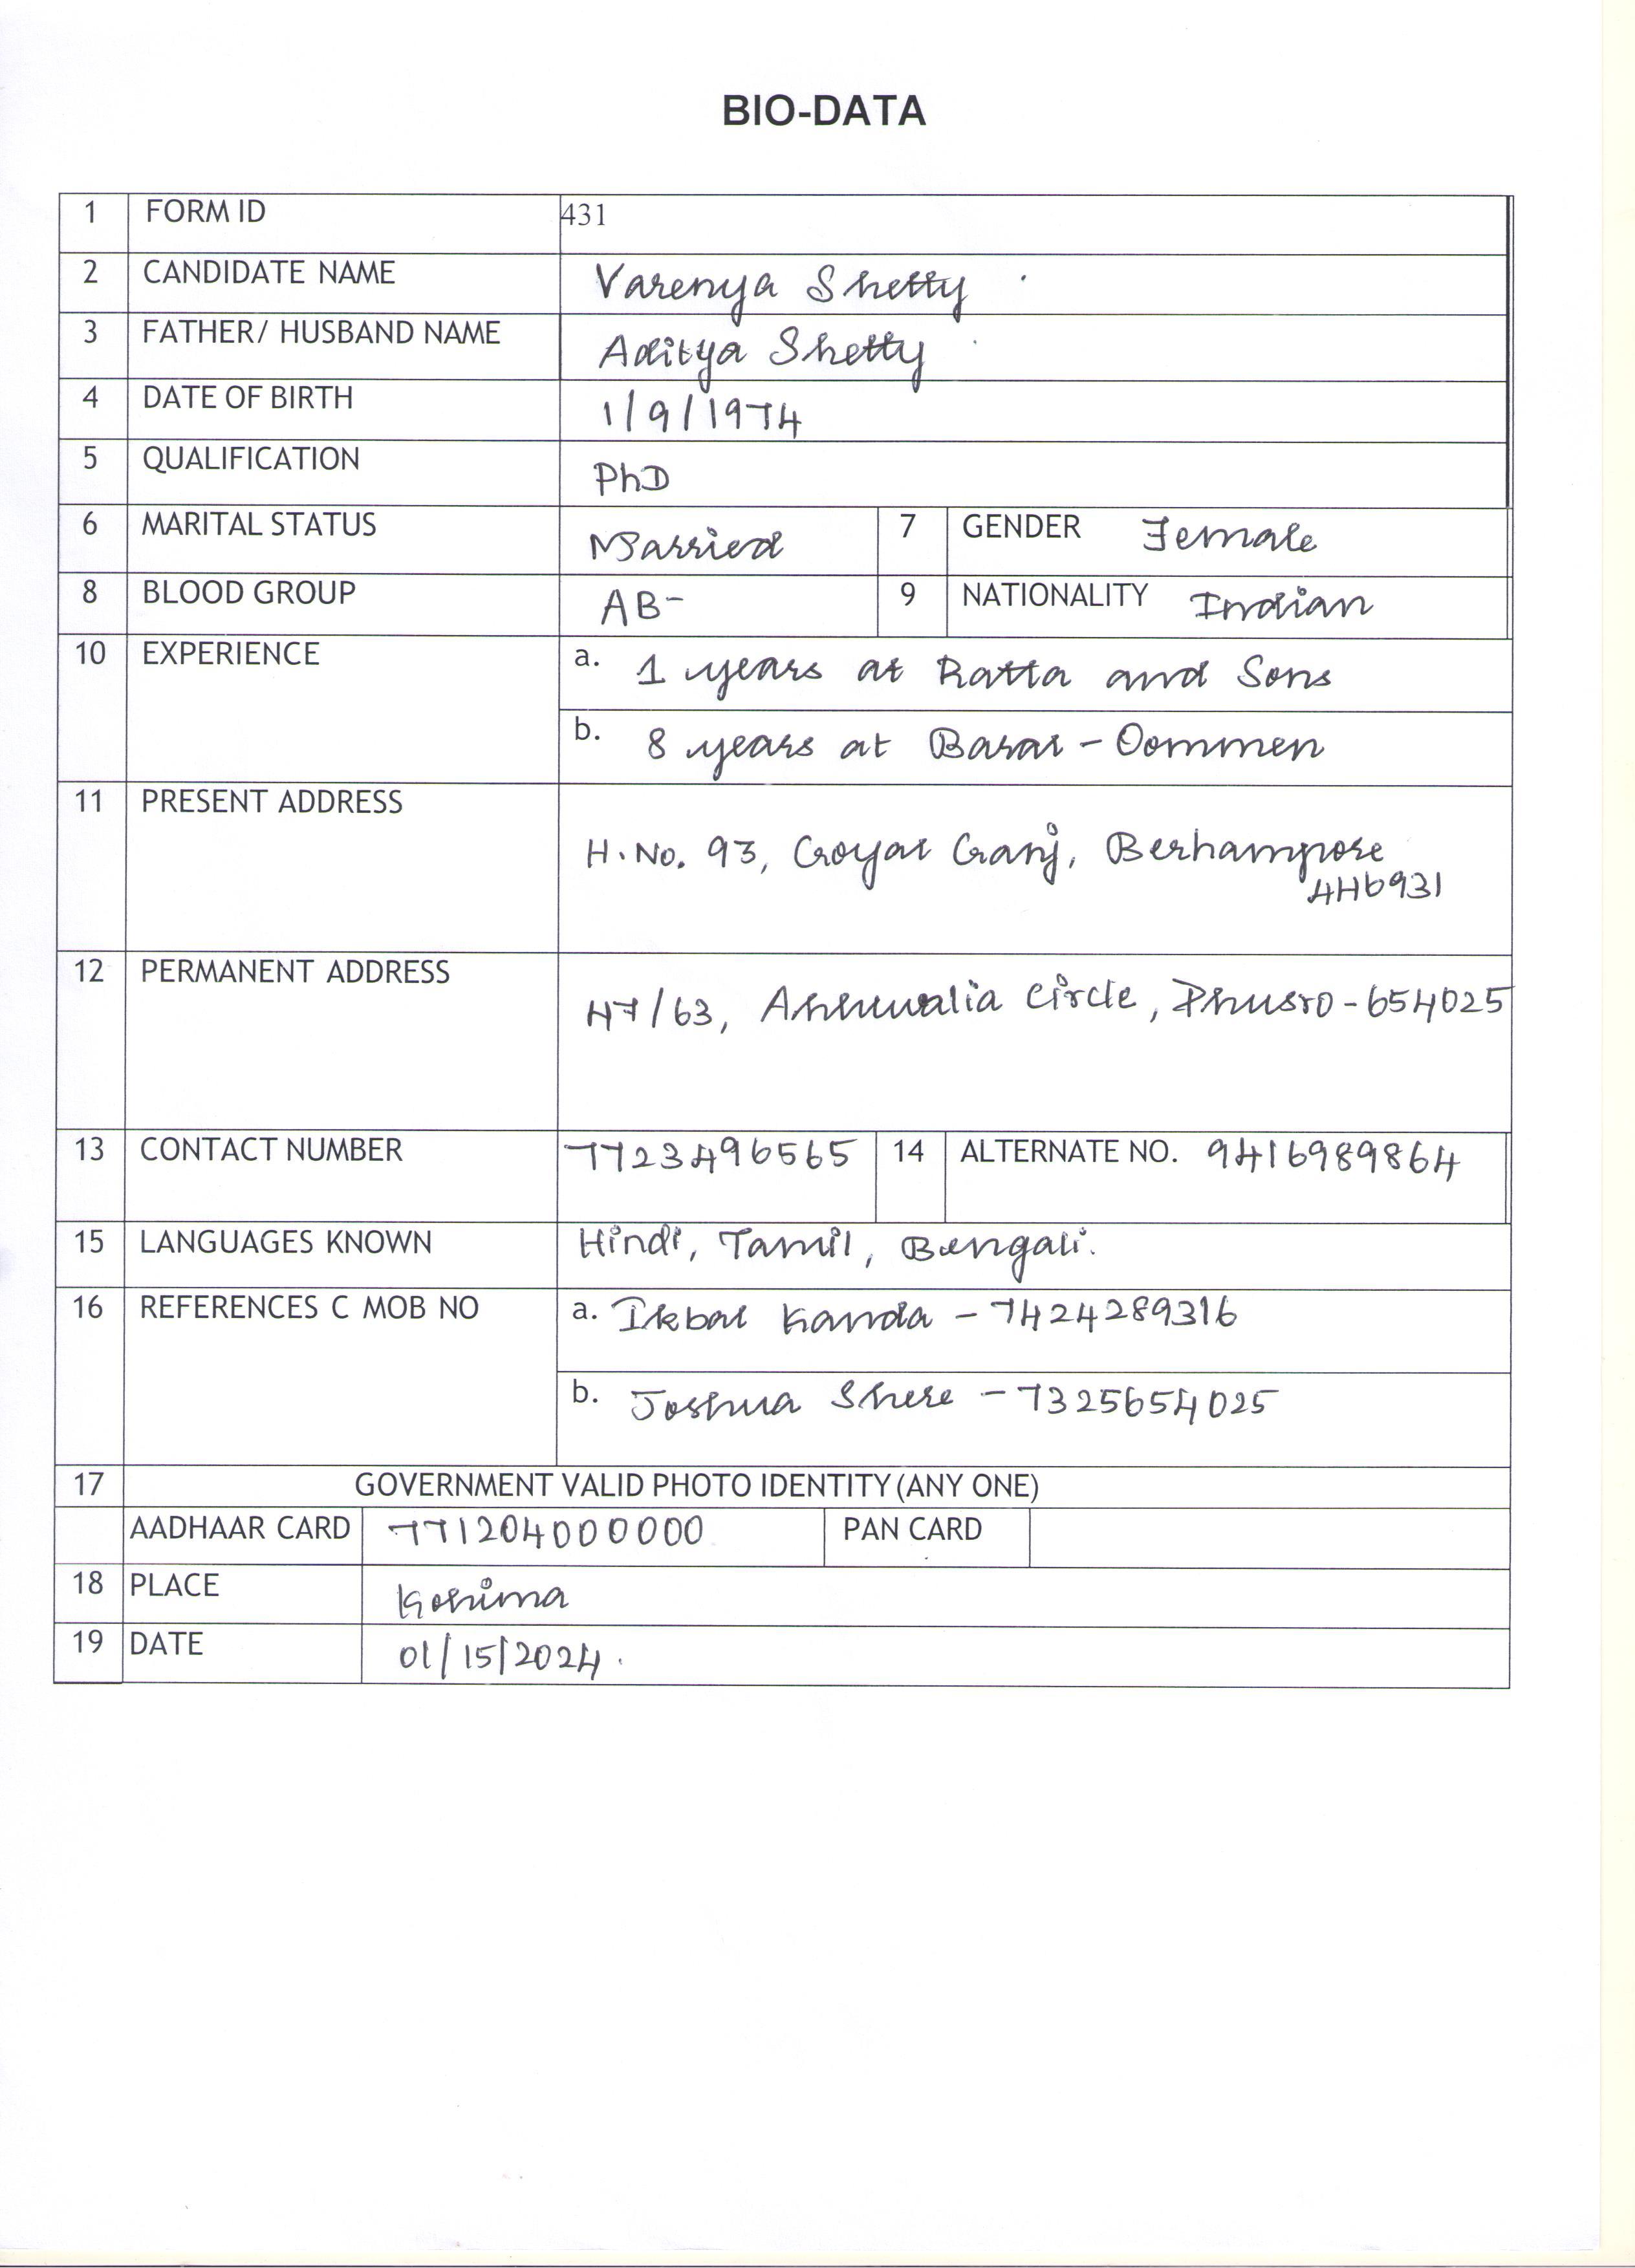 BIO-DATA
1 FORM ID 431
2 CANDIDATE NAME Varenya Shetty
3 FATHER/ HUSBAND NAME Aditya Shetty
4 DATE OF BIRTH 1/9/1974
5 QUALIFICATION PhD
6 MARITAL STATUS Married 7 GENDER Female
8 BLOOD GROUP AB-
9 NATIONALITY Indian
10 EXPERIENCE a. 1 years at Ratta and Sons
b. 8 years at Basar - Oommen
11 PRESENT ADDRESS
H.No. 93, Goyal Ganj, Berhampore
446931
12 PERMANENT ADDRESS
H7/63, Ahluwalia Circle, Phusro - 654025
13 CONTACT NUMBER 7723496565 14 ALTERNATE NO. 9416989864
15 LANGUAGES KNOWN Hindi, Tamil, Bengali.
16 REFERENCES C MOB NO a. Ikbal Kanda - 7424289316
b. Joshua Shere - 7325654025
17 GOVERNMENT VALID PHOTO IDENTITY (ANY ONE)
AADHAAR CARD 771204000000 PAN CARD
18 PLACE Kohima
19 DATE 01/15/2024.